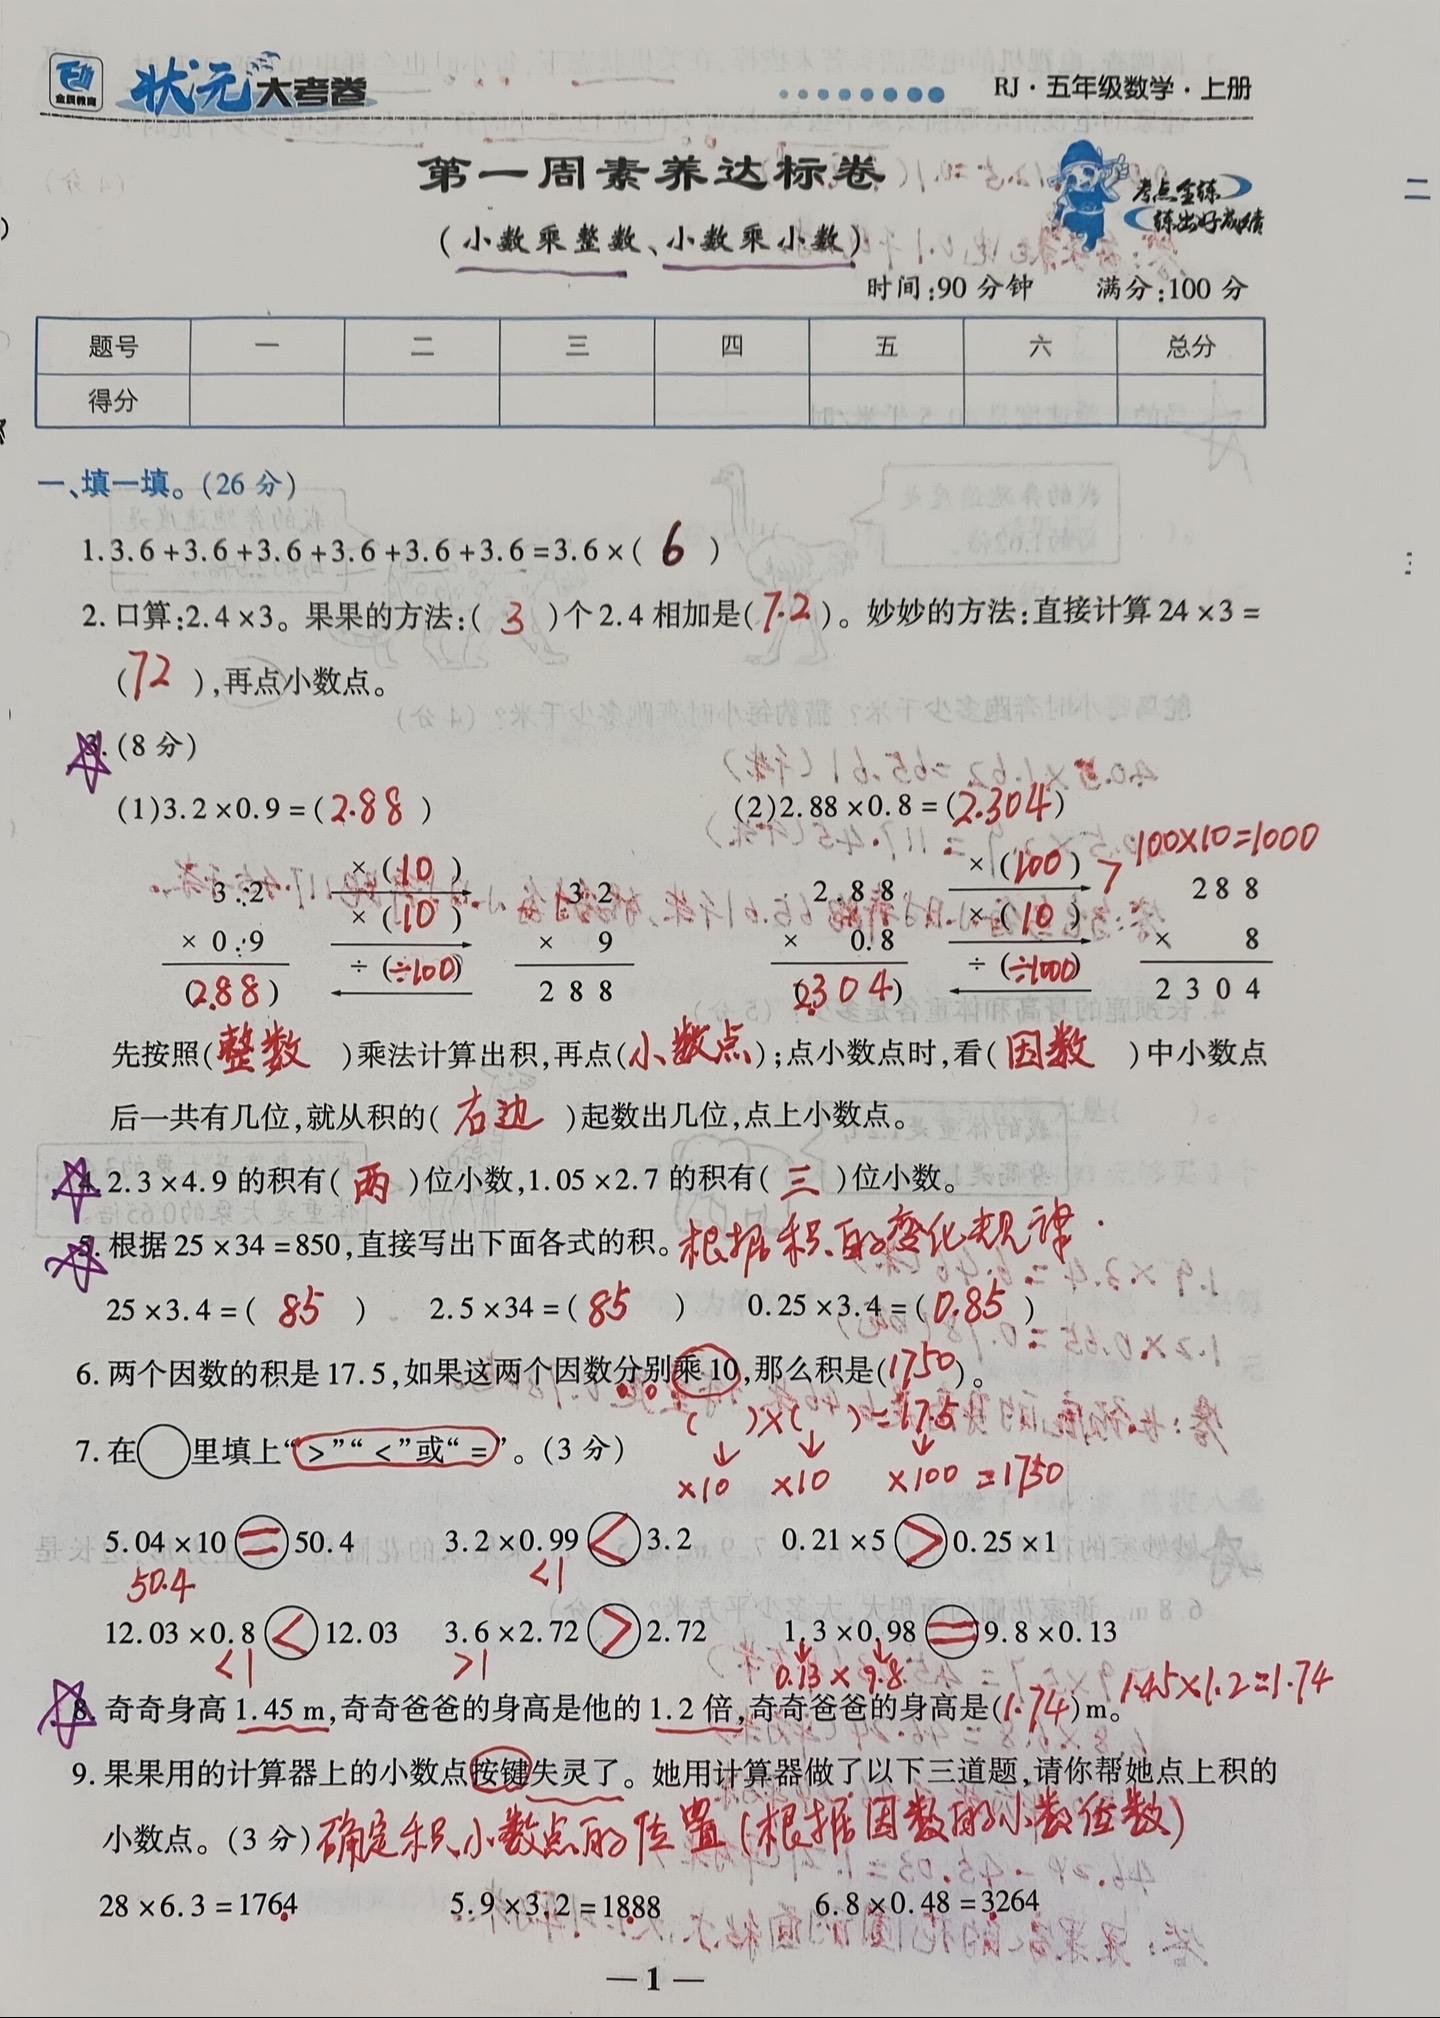 金质教育 状元大考卷 RJ·五年级数学·上册
第一周素养达标卷
考点全练
练出好成绩
(小数乘整数、小数乘小数)
时间:90 分钟 满分:100 分
题号 一 二 三 四 五 六 总分
得分
一、填一填。(26 分)
1.3.6+3.6+3.6+3.6+3.6+3.6=3.6×( 6 )
2. 口算:2.4×3。果果的方法:( 3 )个 2.4 相加是(7.2)。妙妙的方法:直接计算 24×3=
(72 ),再点小数点。
3.(8 分)
(1)3.2×0.9=(2.88 ) (2)2.88×0.8=(2.304)
×(10 ) ×(100) 100×10=1000
3.2 32 2.88 288
×(10 ) ×(10 )
×0.9 × 9 × 0.8 × 8
÷(÷100) ÷(÷1000)
(2.88) 288 (2.304) 2304
先按照(整数 )乘法计算出积,再点(小数点);点小数点时,看(因数 )中小数点
后一共有几位,就从积的( 右边 )起数出几位,点上小数点。
4. 2.3×4.9 的积有( 两 )位小数,1.05×2.7 的积有( 三 )位小数。
5. 根据 25×34=850,直接写出下面各式的积。根据积的变化规律.
25×3.4=( 85 ) 2.5×34=( 85 ) 0.25×3.4=(0.85 )
6. 两个因数的积是 17.5,如果这两个因数分别乘 10,那么积是(1750)。
( )×( )=17.5
7. 在○里填上“>”“<”或“=”。(3 分)
×10 ×10 ×100 =1750
5.04×10 = 50.4 3.2×0.99 < 3.2 0.21×5 > 0.25×1
50.4 <1
12.03×0.8 < 12.03 3.6×2.72 > 2.72 1.3×0.98 = 9.8×0.13
<1 >1 0.13×9.8
8. 奇奇身高 1.45 m,奇奇爸爸的身高是他的 1.2 倍,奇奇爸爸的身高是(1.74)m。 1.45×1.2=1.74
9. 果果用的计算器上的小数点按键失灵了。她用计算器做了以下三道题,请你帮她点上积的
小数点。(3 分)确定积小数点的位置(根据因数的小数位数)
28×6.3=176.4 5.9×3.2=18.88 6.8×0.48=3.264
—1—